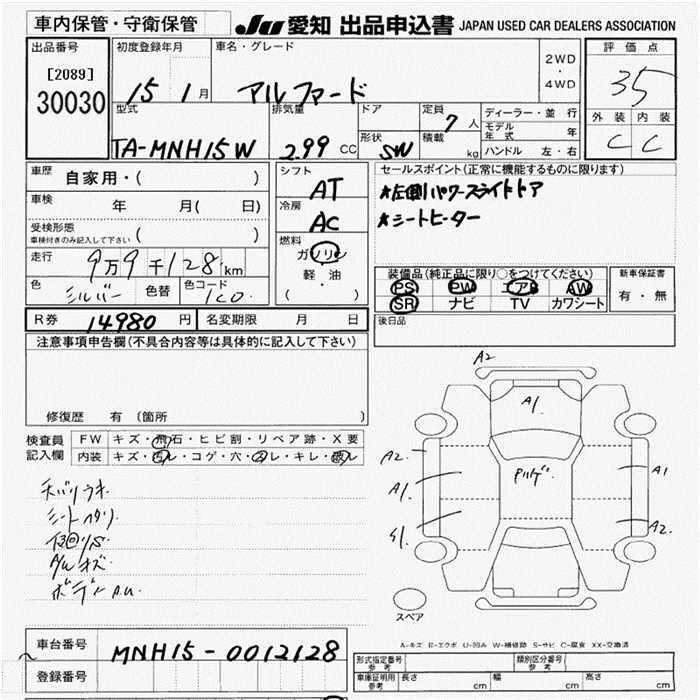 車内保管・守衛保管
JU 愛知 出品申込書 JAPAN USED CAR DEALERS ASSOCIATION
出品番号
[2089]
30030
初度登録年月
15 1 月
車名・グレード
アルファード
2WD
・
4WD
評価点
35
外装 内装
C C
型式
TA-MNH15W
排気量
2.99 CC
ドア
形状
SW
定員
7 人
積載
kg
ディーラー・並行
モデル年式 年
ハンドル 左・右
車歴 自家用・( )
車検 年 月( 日)
受検形態
車検付きのみ記入して下さい ( )
走行 9万9千128km
色 シルバー 色替 色コード 1C0
シフト
AT
冷房
AC
燃料
ガソリン
軽・油
( )
セールスポイント(正常に機能するものに限ります)
*左側パワースライドドア
*シートヒーター
装備品(純正品に限り○をつけてください)
PS PW エアB AW
SR ナビ TV カワシート
新車保証書
有・無
R券 14980 円 名変期限 月 日
後日品
注意事項申告欄(不具合内容等は具体的に記入して下さい)
修復歴 有 〔箇所 〕
検査員
記入欄
FW キズ・飛石・ヒビ割・リペア跡・X要
内装 キズ・汚レ・コゲ・穴・スレ・キレ・破レ
A2
A1
A2
A1
A1
A2
スペア
A-キズ E-エクボ U-凹み W-補修跡 S-サビ C-腐食 XX-交換済
車台番号 MNH15-0012128
登録番号
形式指定番号
参考
類別区分番号
参考
車庫証明用
参考
長さ cm 幅 cm 高さ cm